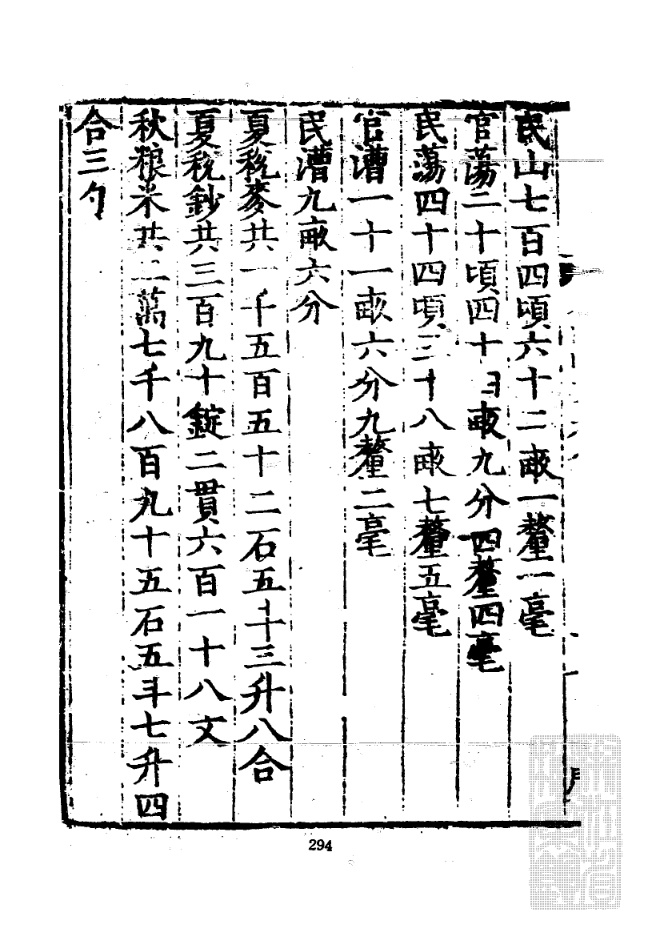 民山七百四頃六十二畝一釐一毫
官蕩二十頃四十畝九分四釐四毫
民蕩四十四頃三十八畝七釐五毫
官漕一十一畝六分九釐二毫
民漕九畝六分
夏稅麥共一千五百五十二石五斗三升八合
夏稅鈔共三百九十錠二貫六百一十八文
秋粮米共二萬七千八百九十五石五斗七升四
合三勺
294